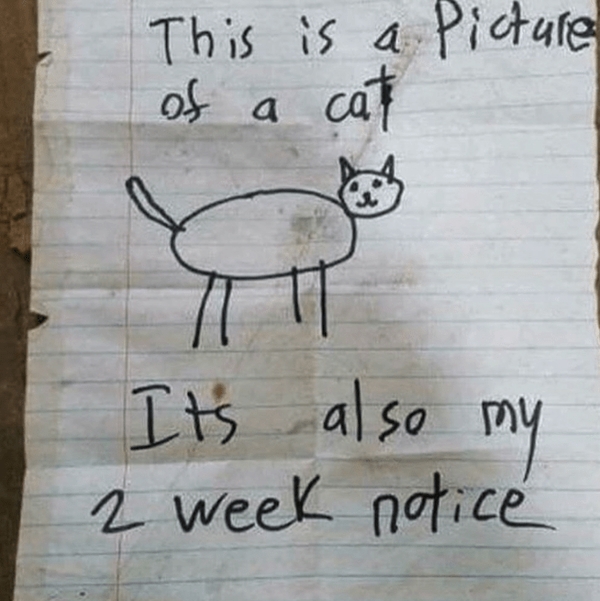 This is a Picture
of a cat
Its also my
2 week notice